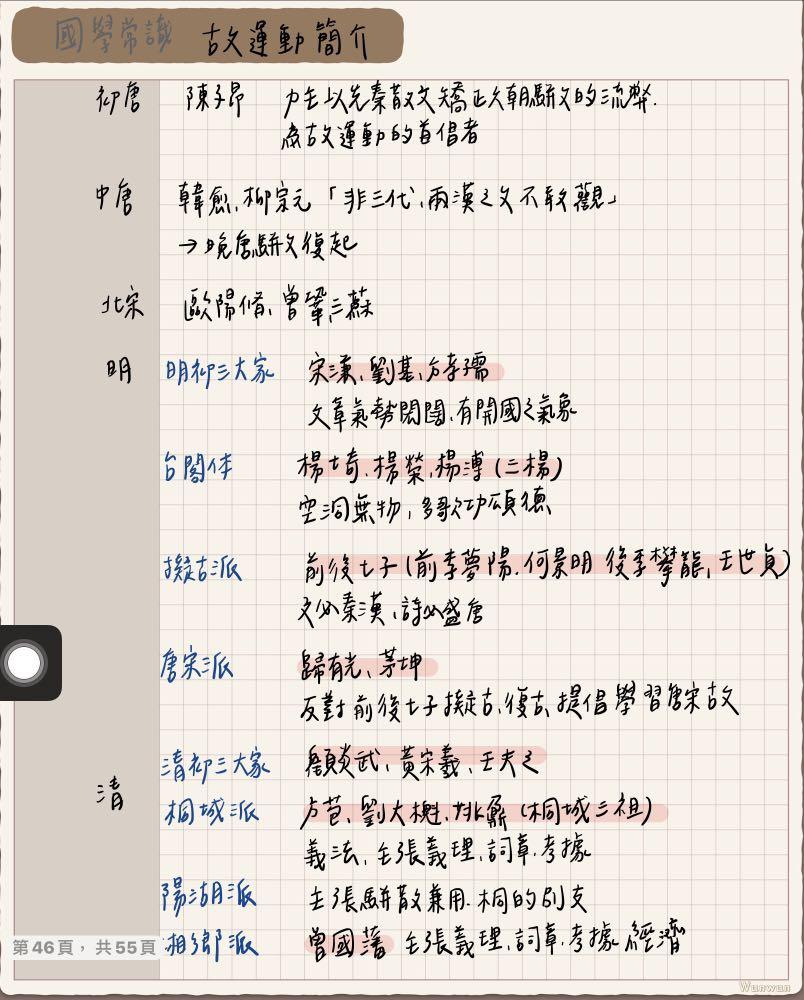 國學常識 古文運動簡介
初唐 陳子昂 力主以先秦散文矯正六朝駢文的流弊.
為古文運動的首倡者
中唐 韓愈、柳宗元「非三代、兩漢之文不敢觀」
→晚唐駢文復起
北宋 歐陽脩、曾鞏、三蘇
明 明初三大家 宋濂、劉基、方孝孺
文章氣勢閎闊、有開國之氣象
台閣体 楊士奇、楊榮、楊溥(三楊)
空洞無物,多歌功頌德
擬古派 前後七子(前李夢陽.何景明 後李攀龍、王世貞)
文必秦漢、詩必盛唐
唐宋派 歸有光、茅坤
反對前後七子擬古、復古、提倡學習唐宋古文
清初三大家 顧炎武、黃宗羲、王夫之
清 桐城派 方苞、劉大櫆、姚鼐(桐城三祖)
義法、主張義理、詞章、考據
陽湖派 主張駢散兼用.桐的別支
湘鄉派 曾國藩 主張義理、詞章、考據、經濟
第46頁,共55頁
Wunwun